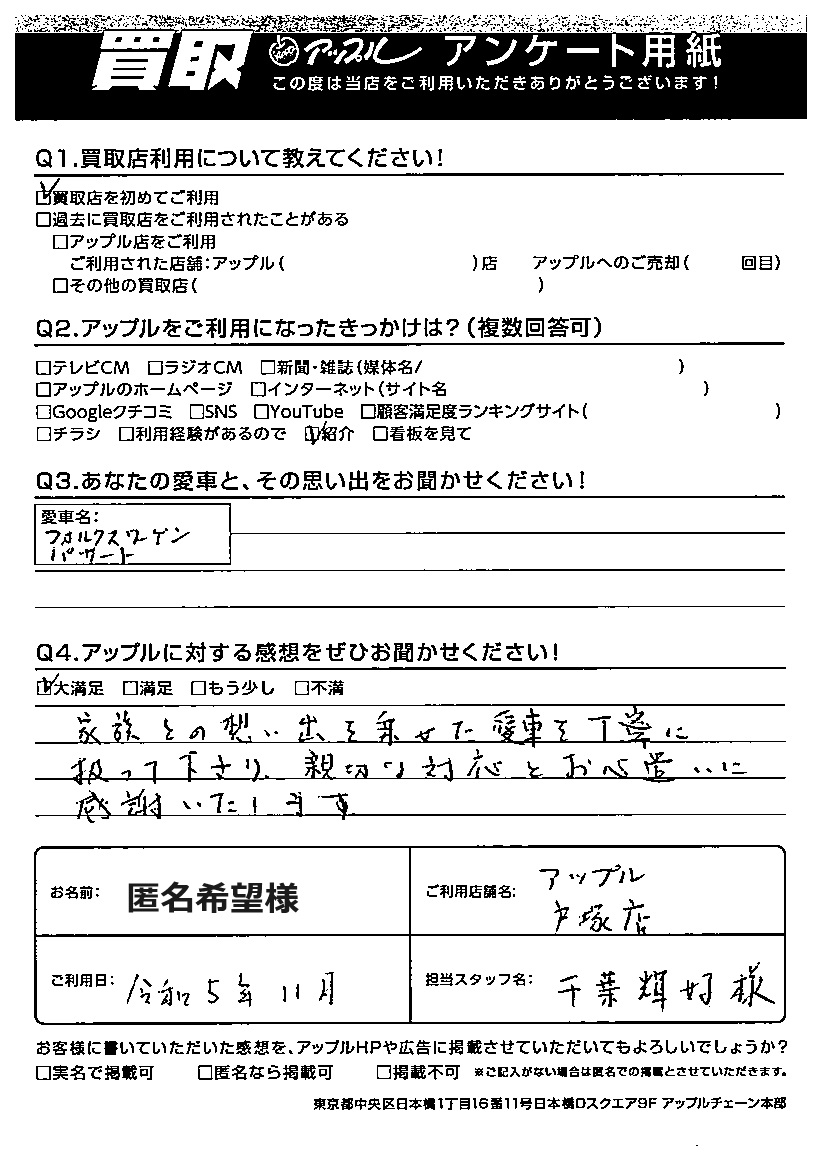 買取 アップル アンケート用紙
この度は当店をご利用いただきありがとうございます!
Q1.買取店利用について教えてください!
☑買取店を初めてご利用
□過去に買取店をご利用されたことがある
□アップル店をご利用
ご利用された店舗:アップル( )店 アップルへのご売却( 回目)
□その他の買取店( )
Q2.アップルをご利用になったきっかけは?(複数回答可)
□テレビCM □ラジオCM □新聞・雑誌(媒体名/ )
□アップルのホームページ □インターネット(サイト名 )
□Googleクチコミ □SNS □YouTube □顧客満足度ランキングサイト( )
□チラシ □利用経験があるので ☑紹介 □看板を見て
Q3.あなたの愛車と、その思い出をお聞かせください!
愛車名:
フォルクスワーゲン
パサート
Q4.アップルに対する感想をぜひお聞かせください!
☑大満足 □満足 □もう少し □不満
家族との想い出を乗せた愛車を丁寧に
扱って下さり、親切な対応とお心遣いに
感謝いたします
お名前: 匿名希望様
ご利用店舗名: アップル
戸塚店
ご利用日: 令和5年11月
担当スタッフ名: 千葉輝好様
お客様に書いていただいた感想を、アップルHPや広告に掲載させていただいてもよろしいでしょうか?
□実名で掲載可 □匿名なら掲載可 □掲載不可 ※ご記入がない場合は匿名での掲載とさせていただきます。
東京都中央区日本橋1丁目16番11号日本橋Dスクエア9F アップルチェーン本部